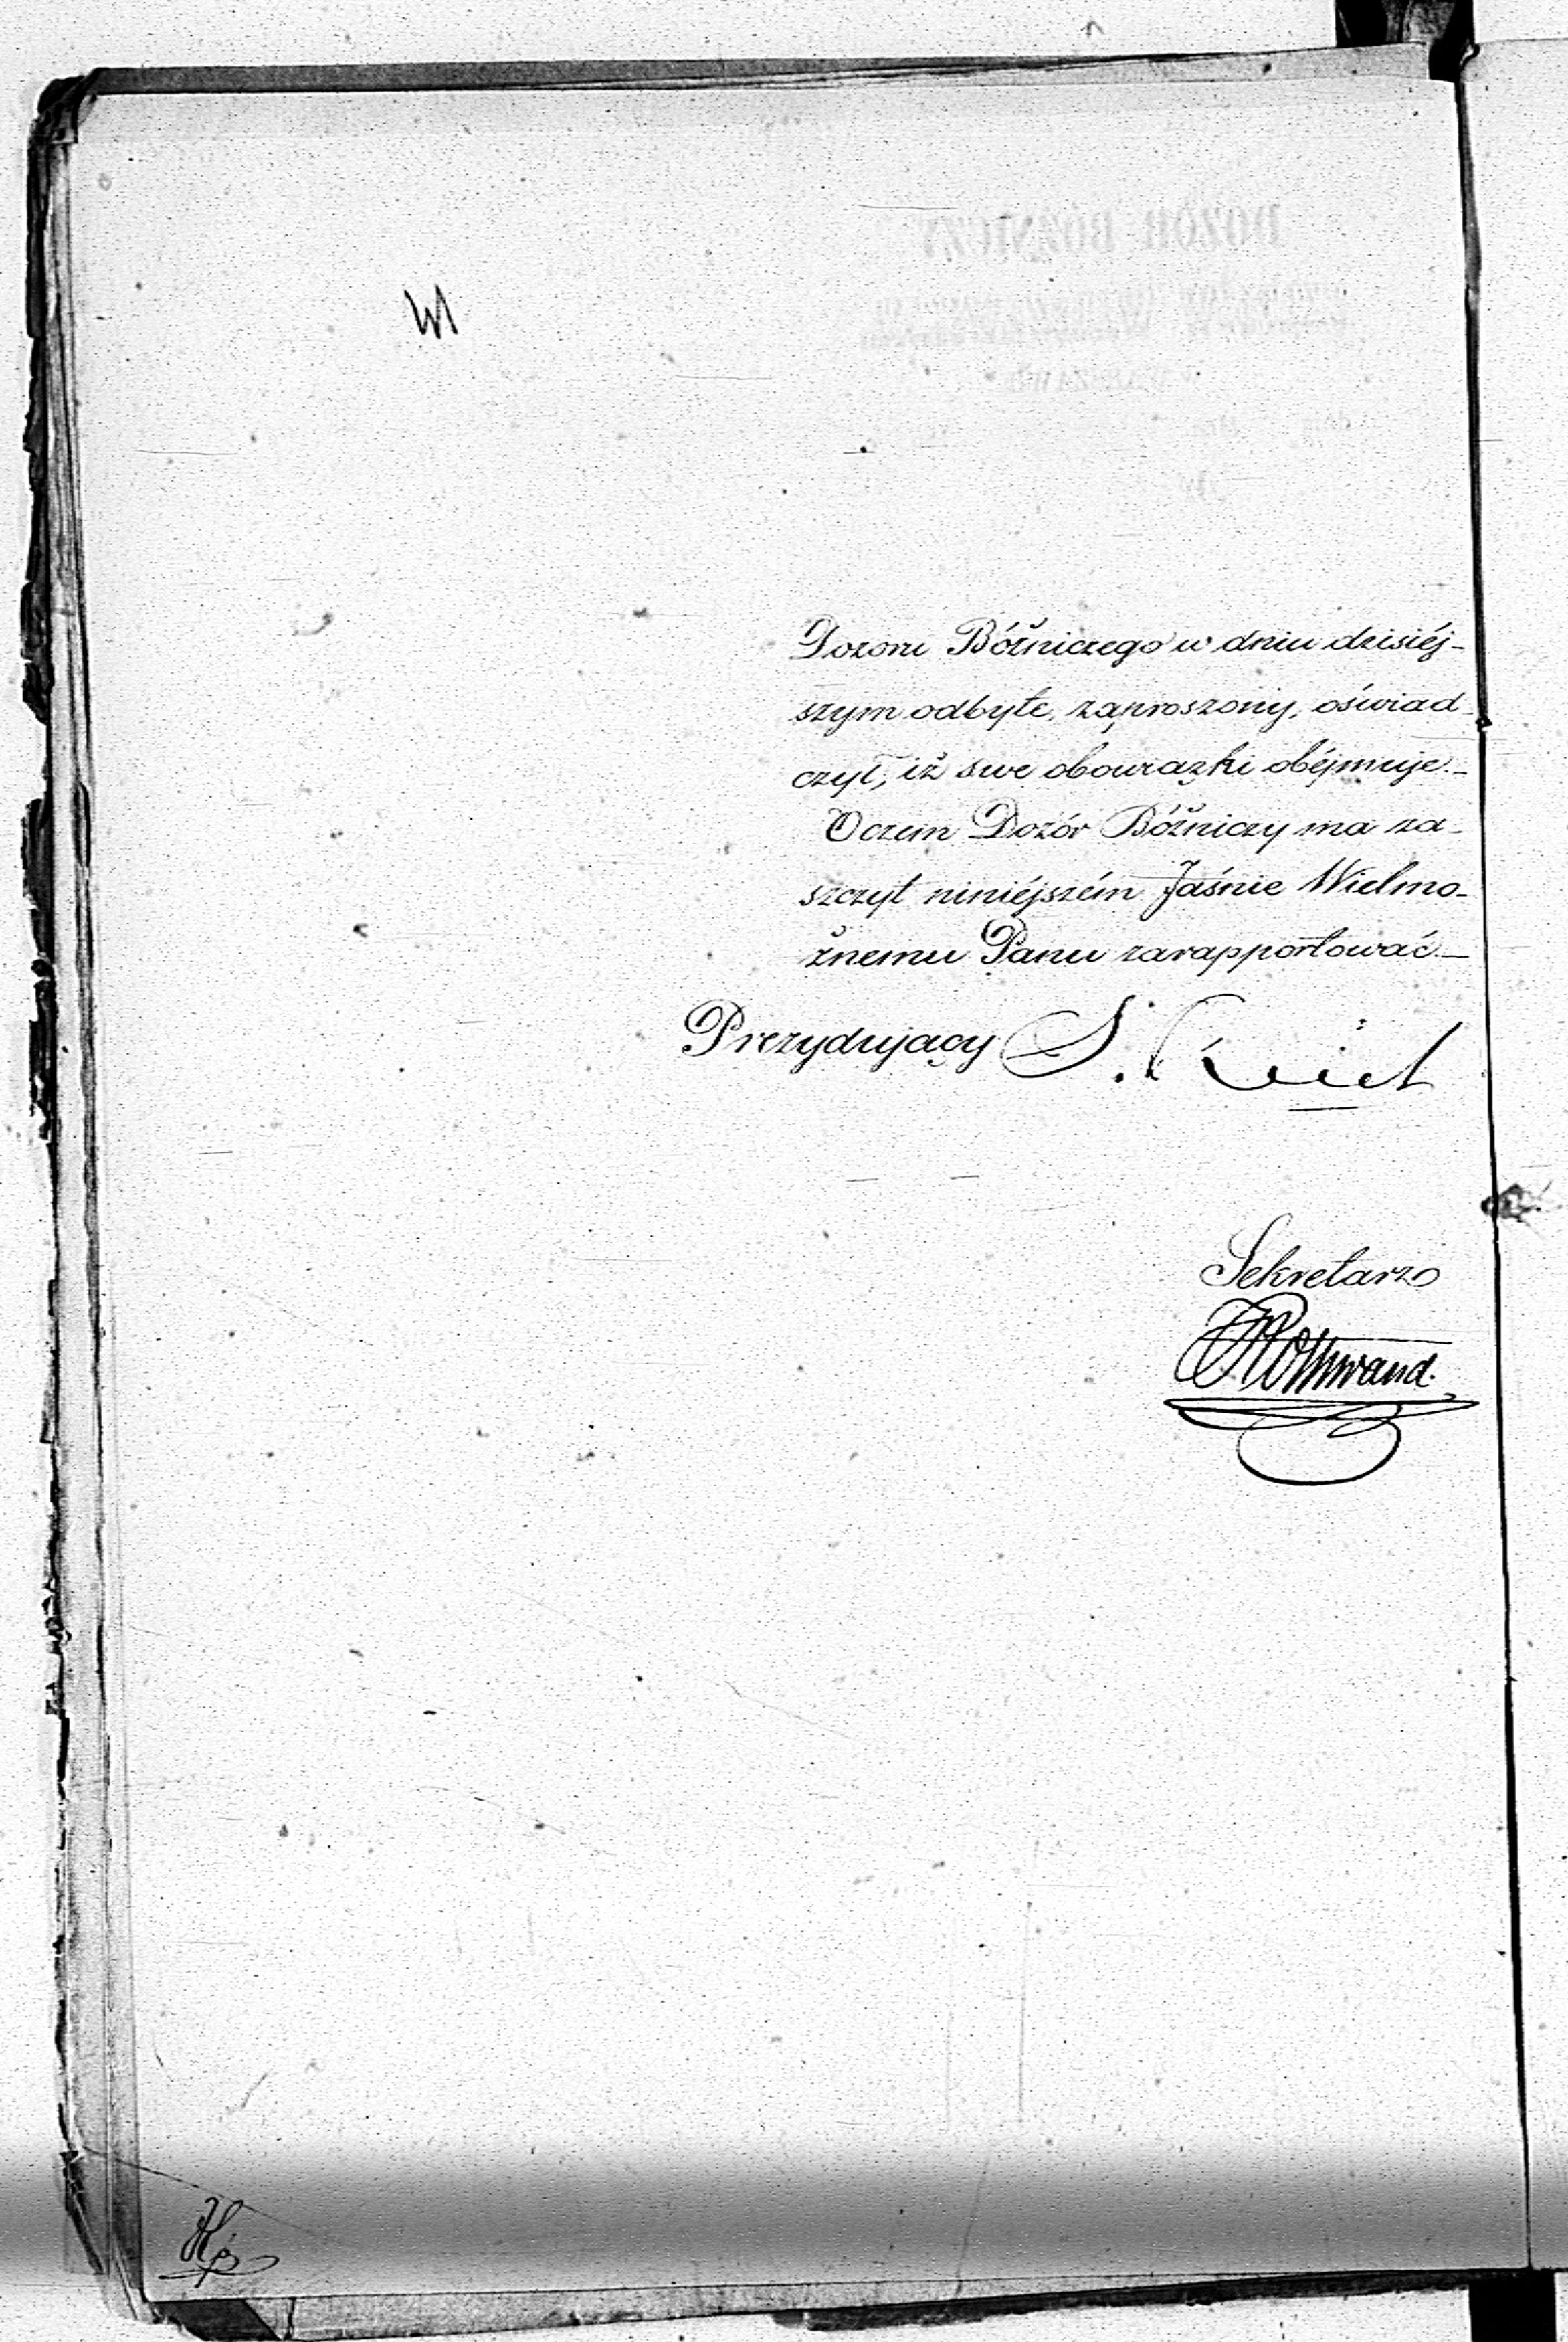 Dozoru Bóżniczego w dniu dzisiéj-
szym odbyłe, zaproszony, oświad-
czył, iż swe obowiązki obéjmuje.-
O czem Dozór Bóżniczy ma za-
szczyt niniéjszém Jaśnie Wielmo-
żnemu Panu zarapportować.-
Prezydujący S.
Sekretarz
Rothwand.